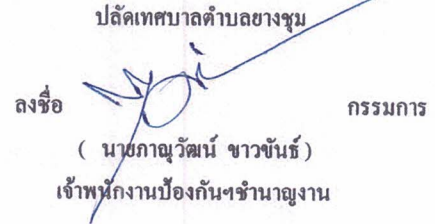 ปลัดเทศบาลตำบลยางชุม
ลงชื่อ กรรมการ
( นายภาณุวัฒน์ ขาวขันธ์ )
เจ้าพนักงานป้องกันฯชำนาญงาน